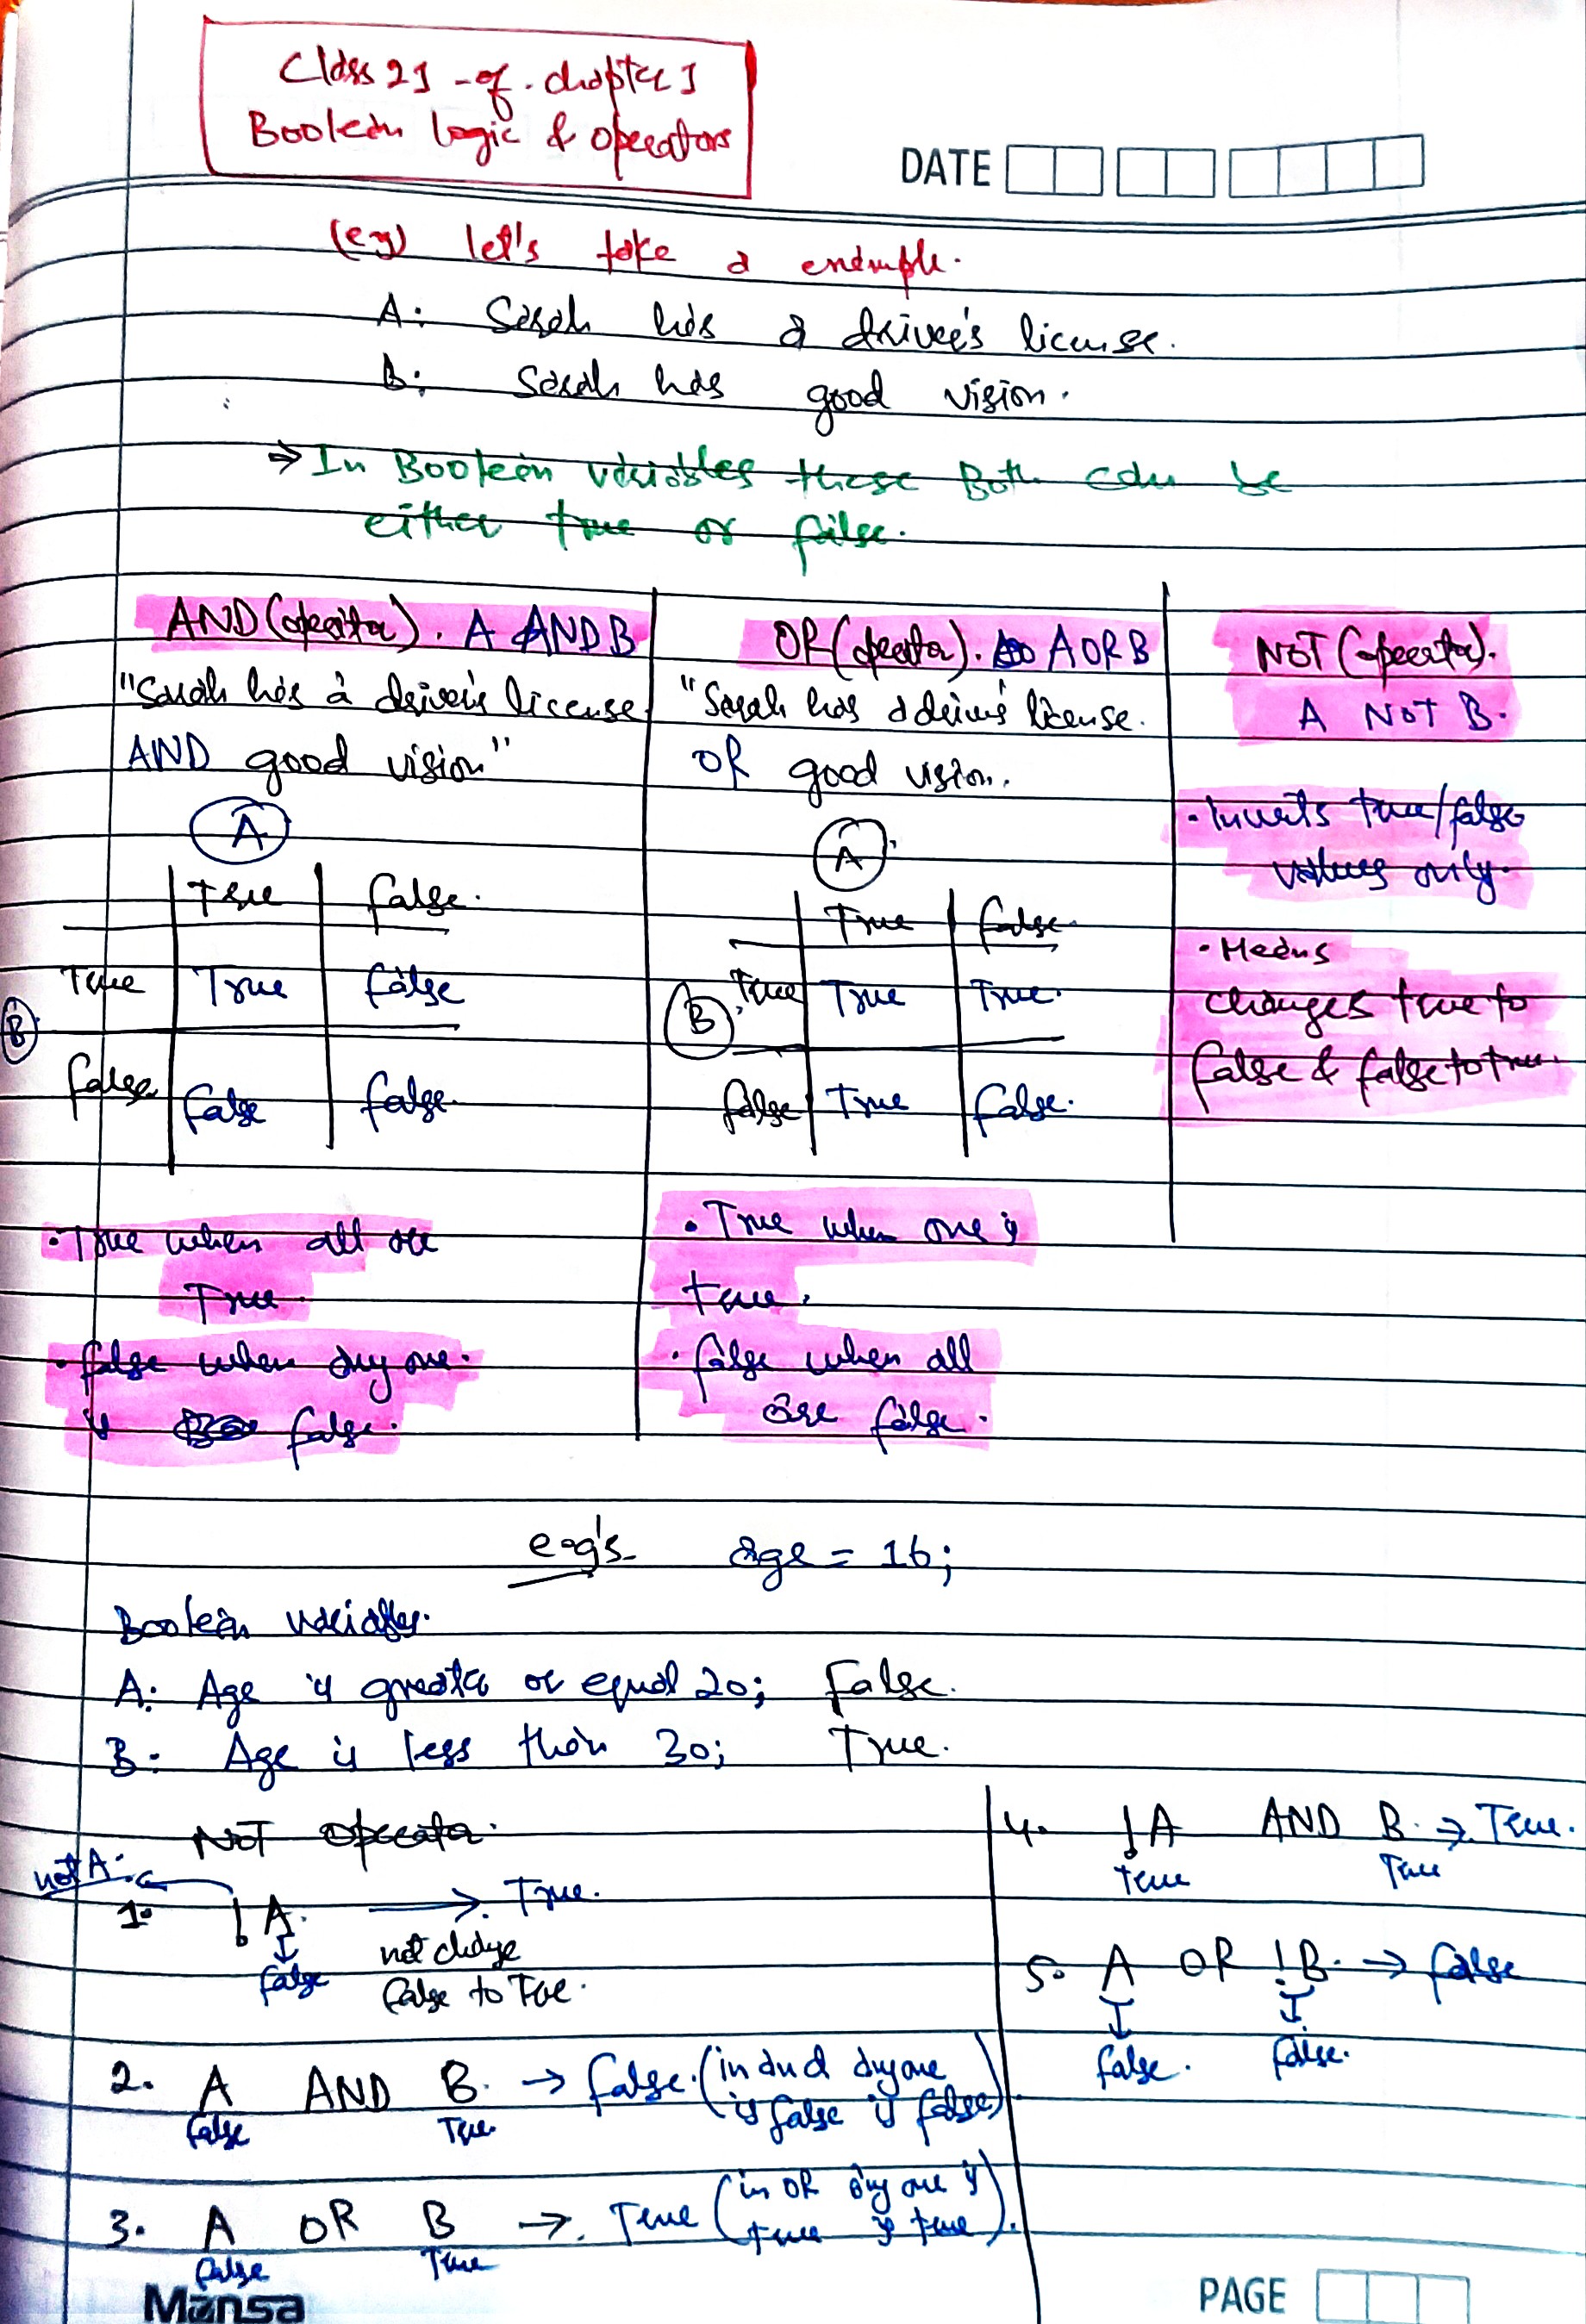 Class 21 - of - chapter 1
Boolean logic & operators
DATE
(eg) let's take a example.
A: Sarah has a driver's license.
B: Sarah has good vision.
⇒ In Boolean variables these Both can be
either true or false.
AND (operator). A AND B
"Sarah has a driver's license
AND good vision"
A
True false.
True True false
B
false. false false.
• True when all are
True.
• false when any one.
is false.
OR (operator). A OR B
"Sarah has a driver's license.
OR good vision.
A
True false.
True True True.
B
false True false.
• True when one is
true.
• false when all
are false.
NOT (operator).
A NOT B.
• Inverts true/false
values only.
• Means
changes true to
false & false to true.
e.g's age = 16;
Boolean variables.
A: Age is greater or equal 20; False.
B: Age is less than 30; True.
NOT operator.
not A.
1. !A. → True.
false
not change
false to True.
2. A AND B. → false. (in and any one
is false is false)
false True
3. A OR B → True (in OR any one is
true is true).
false True
4. !A AND B. → True.
True True
5. A OR !B. → false
false. false.
Mansa
PAGE